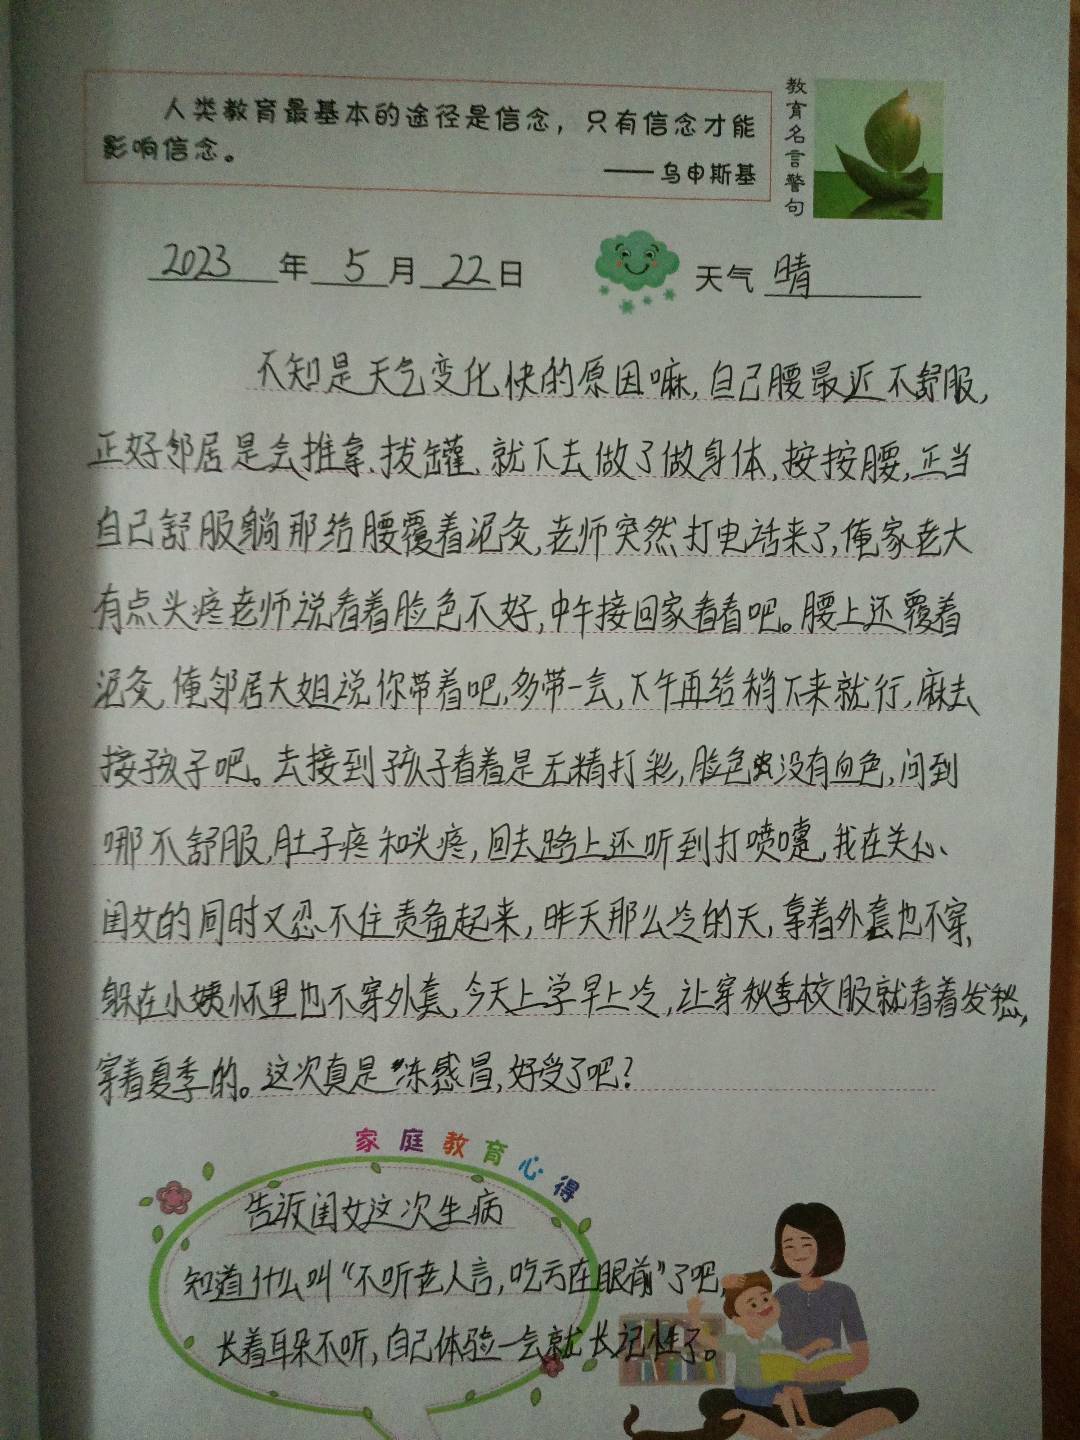 人类教育最基本的途径是信念，只有信念才能
影响信念。
——乌申斯基
教育名言警句
2023年5月22日 天气 晴
不知是天气变化快的原因嘛,自己腰最近不舒服,
正好邻居是会推拿、拔罐、就下去做了做身体,按按腰,正当
自己舒服躺那给腰覆着泥灸,老师突然打电话来了,俺家老大
有点头疼老师说看着脸色不好,中午接回家看看吧。腰上还覆着
泥灸,俺邻居大姐说你带着吧,多带一会,下午再给稍下来就行,麻去
接孩子吧。去接到孩子看着是无精打彩,脸色没有血色,问到
哪不舒服,肚子疼和头疼,回去路上还听到打喷嚏,我在关心
闺女的同时又忍不住责备起来,昨天那么冷的天,拿着外套也不穿,
躲在小姨怀里也不穿外套,今天上学早上冷,让穿秋季校服就看着发愁,
穿着夏季的。这次真是冻感冒,好受了吧?
家庭教育心得
告诉闺女这次生病
知道什么叫“不听老人言,吃亏在眼前”了吧,
长着耳朵不听,自己体验一会就长记性了。